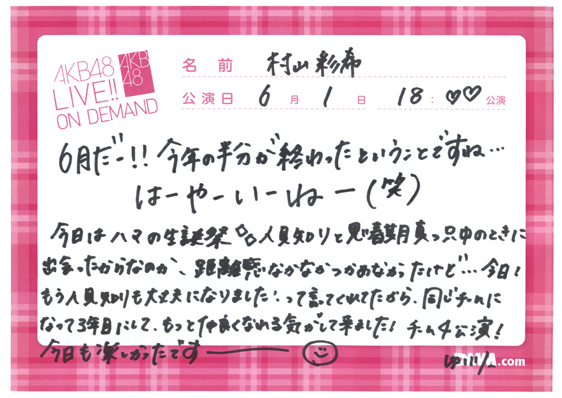 AKB48
LIVE!!
ON DEMAND
AKB
48
名前 村山彩希
公演日 6月1日 18:♡♡公演
6月だー!!今年の半分が終わったということですね…
はーやーいーねー(笑)
今日はハマの生誕祭 人見知りと思春期真っ只中のときに
出会ったからなのか、距離感なかなかつかめなかったけど…今日!
もう人見知りも大丈夫になりました!って言ってくれてたから、同じチームに
なって3年目にして、もっと仲良くなれる気がして来ました!チーム4公演!
今日も楽しかったです
.com